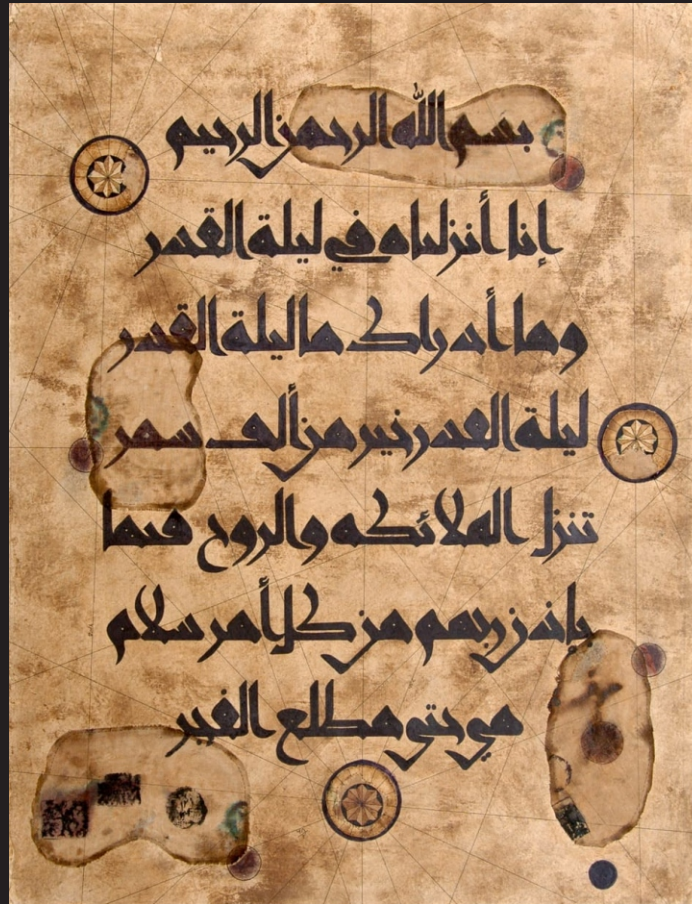 بسم الله الرحمن الرحيم
إنا أنزلناه في ليلة القدر
وما أدراك ما ليلة القدر
ليلة القدر خير من ألف شهر
تنزل الملائكة والروح فيها
بإذن ربهم من كل أمر سلام
هي حتى مطلع الفجر